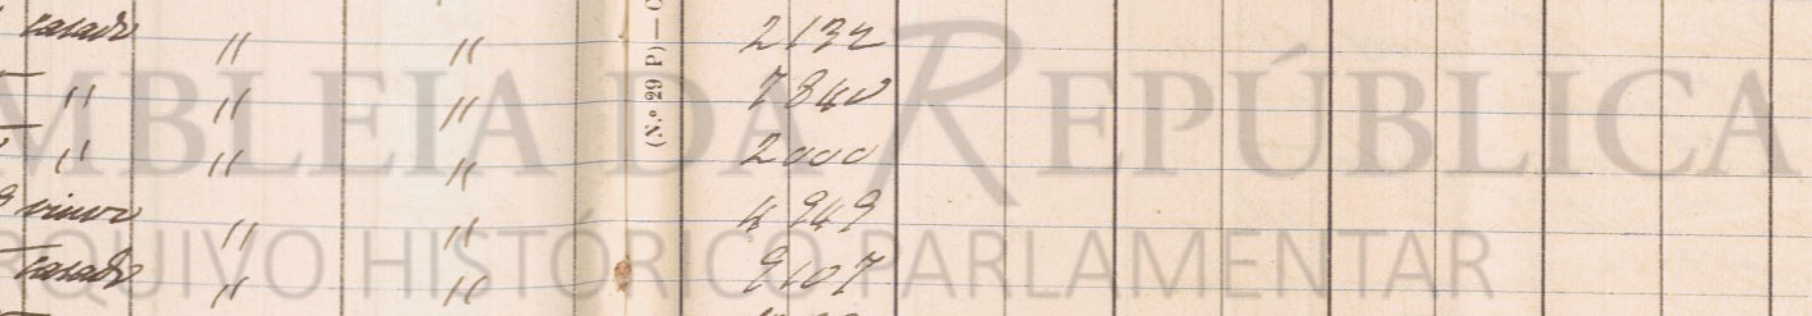 casado " " 2132
" " " 7840
" " " 2000
viuvo " " 4949
casado " " 9107
(N.º 29 P)—
ASSEMBLEIA DA REPÚBLICA
ARQUIVO HISTÓRICO PARLAMENTAR